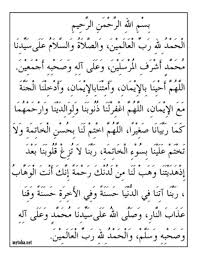 بِسْمِ اللهِ الرَّحْمَنِ الرَّحِيمِ
الْحَمْدُ لِلَّهِ رَبِّ الْعَالَمِينَ، وَالصَّلَاةُ وَالسَّلَامُ عَلَى سَيِّدِنَا
مُحَمَّدٍ أَشْرَفِ الْمُرْسَلِينَ، وَعَلَى آلِهِ وَصَحْبِهِ أَجْمَعِينَ.
اللَّهُمَّ أَحْيِنَا بِالْإِيمَانِ، وَأَمِتْنَا بِالْإِيمَانِ، وَأَدْخِلْنَا الْجَنَّةَ
مَعَ الْإِيمَانِ، اللَّهُمَّ اغْفِرْ لَنَا ذُنُوبَنَا وَلِوَالِدَيْنَا وَارْحَمْهُمَا
كَمَا رَبَّيَانَا صِغَيرًا، اللَّهُمَّ اخْتِمْ لَنَا بِحُسْنِ الْخَاتِمَةِ وَلَا
تَخْتِمْ عَلَيْنَا بِسُوءِ الْخَاتِمَةِ، رَبَّنَا لَا تُزِغْ قُلُوبَنَا بَعْدَ
إِذْهَدَيْتَنَا وَهَبْ لَنَا مِنْ لَدُنْكَ رَحْمَةً إِنَّكَ أَنْتَ الْوَهَّابُ
، رَبَّنَا آتِنَا فِي الدُّنْيَا حَسَنَةً وَفِي الْآخِرَةِ حَسَنَةً وَقِنَا
عَذَابَ النَّارِ، وَصَلَّى اللهُ عَلَى سَيِّدِنَا مُحَمَّدٍ وَعَلَى آلِهِ
وَصَحْبِهِ وَسَلَّمَ، وَالْحَمْدُ لِلَّهِ رَبِّ الْعَالَمِينَ.
mytoha.net